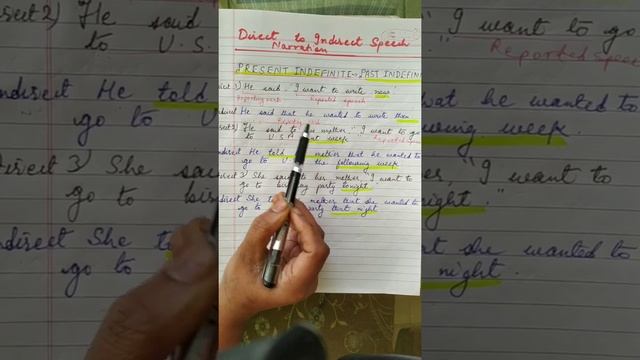 Direct to Indirect Speech
Narration
PRESENT INDEFINITE → PAST INDEFIN
Direct 1) He said, "I want to write now."
Reporting verb Reported speech
Indirect He said that he wanted to write then
Direct 2) He said to his mother, "I want to go
to U.S. next week
Indirect He told mother that he wanted to
go to U.S. the following week
Direct 3) She said to her mother, "I want to
go to birthday party tonight."
Indirect She mother that she wanted to
go to party that night